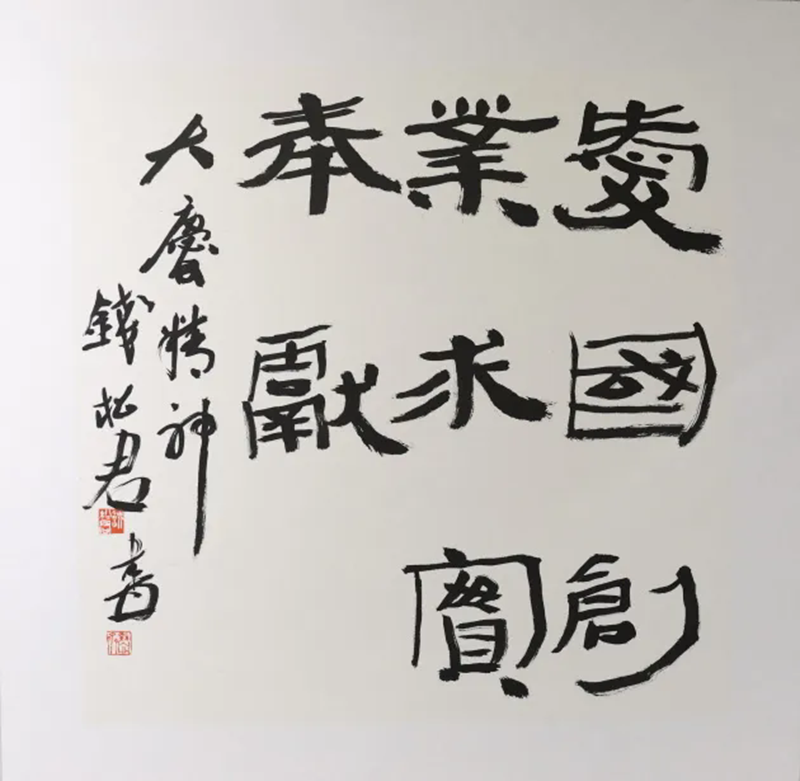 愛國創
業求實
奉獻
大慶精神
錢松君書